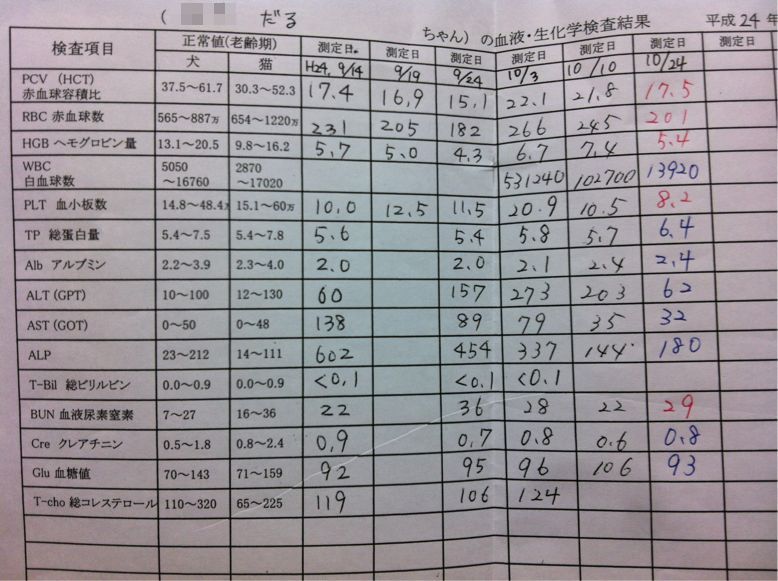 ( だる ちゃん) の血液・生化学検査結果 平成24年
検査項目 正常値(老齢期) 測定日 測定日 測定日 測定日 測定日 測定日 測定日
犬 猫 H24, 9/14 9/19 9/24 10/3 10/10 10/24
PCV (HCT) 赤血球容積比 37.5~61.7 30.3~52.3 17.4 16,9 15,1 22.1 21.8 17.5
RBC 赤血球数 565~887万 654~1220万 231 205 182 266 245 201
HGB ヘモグロビン量 13.1~20.5 9.8~16.2 5.7 5.0 4.3 6.7 7.4 5.4
WBC 白血球数 5050~16760 2870~17020 531240 102700 13920
PLT 血小板数 14.8~48.4万 15.1~60万 10.0 12.5 11.5 20.9 10.5 8.2
TP 総蛋白量 5.4~7.5 5.4~7.8 5.6 5.4 5.8 5.7 6.4
Alb アルブミン 2.2~3.9 2.3~4.0 2.0 2.0 2.1 2.4 2.4
ALT (GPT) 10~100 12~130 60 157 273 203 62
AST (GOT) 0~50 0~48 138 89 79 35 32
ALP 23~212 14~111 602 454 337 144 180
T-Bil 総ビリルビン 0.0~0.9 0.0~0.9 <0,1 <0,1 <0.1
BUN 血液尿素窒素 7~27 16~36 22 36 28 22 29
Cre クレアチニン 0.5~1.8 0.8~2.4 0,9 0,7 0.8 0.6 0.8
Glu 血糖値 70~143 71~159 92 95 96 106 93
T-cho 総コレステロール 110~320 65~225 119 106 124